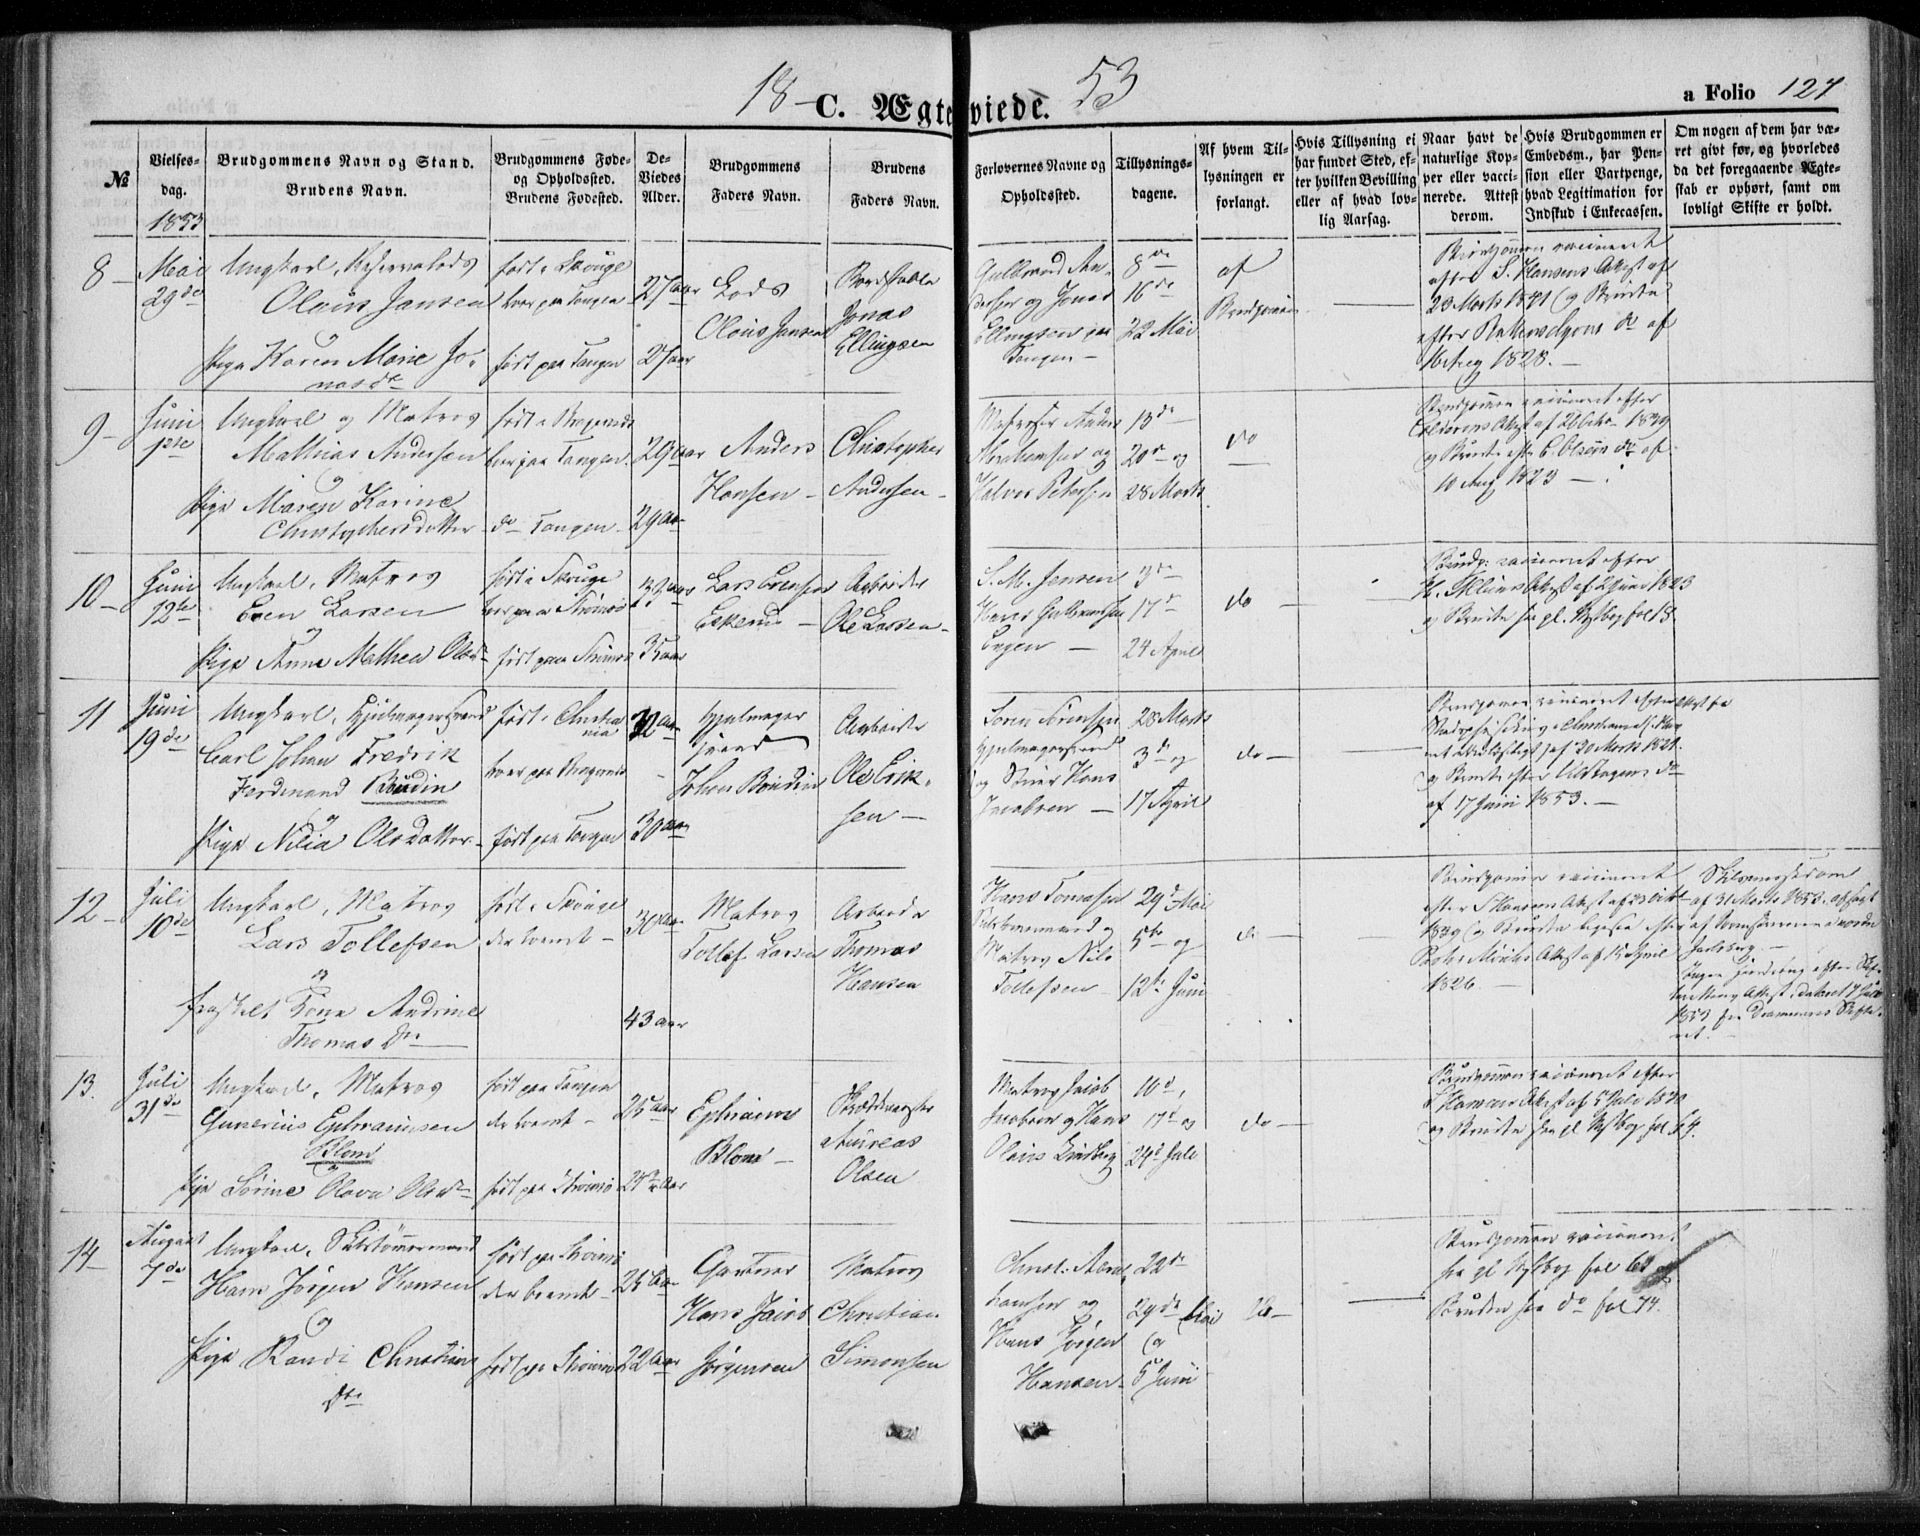 18 — 53
C. Ægteviede.
a Folio 127
№
Vielses-
dag.
Brudgommens Navn og Stand.
Brudens Navn.
Brudgommens Føde-
og Opholdssted.
Brudens Fødested.
De
Viedes
Alder.
Brudgommens
Faders Navn.
Brudens
Faders Navn.
Forlovernes Navne og
Opholdssted.
Tillysnings-
dagene.
Af hvem Til-
lysningen er
forlangt.
Hvis Tillysning ei
har fundet Sted, ef-
ter hvilken Bevilling
eller af hvad lov-
lig Aarsag.
Naar havt de
naturlige Kop-
per eller vacci-
nerede. Attest
derom.
Hvis Brudgommen er
Embedsm., har Pen-
sion eller Vartpenge,
hvad Legitimation for
Indskud i Enkecassen.
Om nogen af dem har væ-
ret givt før, og hvorledes
da det foregaaende Ægte-
skab er ophørt, samt om
lovligt Skifte er holdt.
1853
8 —
Mai
29de
Ungkarl, Reservelods
Olaus Jansen
og
Pige Karen Marie Jo-
nasdr
født i Skouge
boer paa Tangen
født paa Tangen
27 aar
27 aar
Lods
Olaus Jansen
Jonas
Ellingsen
Gulbrand An-
dersen og Jonas
Ellingsen paa
Tangen —
8de
16de
22 Mai
af
Brudgomen
Brudgomen vaccineret
efter S. Hansens Attest af
23 Marts 1841 og Bruden
efter
1828. —
9 —
Juni
Ungkarl og Matros
Mathias Andersen
og
Pige Maren Karine
Christophersdatter
født i Bragernes
boer paa Tangen
do Tangen
29 aar
29 aar
Anders
Hansen —
Christopher
Andersen —
Matroser Anders
Abrahamsen og
Halvor Petersen
13de
20de og
28 Marts
do
Brudgomen vaccineret efter
Attest af 26 Octo. 1839
og Bruden efter C. Olsens do af
10 Aug 1823 —
10 —
Juni
12te
Ungkarl, Matros
Even Larsen
og
Pige Anne Mathea Olsdr
født i Skouge
boer paa Strømsø
født paa Strømsø
33 aar
35 aar
Lars Evensen
Eskerud —
Arbeider
Ole Larsen —
S. M. Jensen
Hans Gulbrandsen
Engen —
3de
17de
24 April
do —
Brudg. vaccineret efter
Attest af 2 Juni 1823
og Bruden see gl. Kysbog fol 18.
11
Juni
19de
Ungkarl, Hjulmagersvend
Carl Johan Fredrik
Ferdinand Boudin
og
Pige Nilia Olsdatter
født i Christia
nia
boer paa Bragernes
født paa Tangen
30 aar
Hjulmager
svend
Johan Boudin
Arbeider
Ole Erik-
sen —
Søren Sørensen
Hjulmagersvend
og Skiver Hans
Jacobsen —
28 Marts
3de og
17 April
do —
Brudgomen vaccineret efter Attest fra
i Christiania
af 30 Marts 1821.
og Bruden efter do
af 17 Juni 1853. —
12 —
Juli
10de
Ungkarl, Matros
Lars Tollefsen
og
fraskilt Tone Andrine
Thomas Dr
født i Skouge
der boende —
30 aar
43 aar
Matros
Tollef Larsen
Arbeider
Thomas
Hansen
Hans Tomasen
og
Matros Nils
Tollefsen —
29de Mai
5te og
12te Juni
do —
Brudgomen vaccineret
efter S Hansens Attest af 23 Octbr
1839 og Bruden ligesaa efter
Attest af 15 April
1826 —
af 31 Marts 1853. afsagt
Jarlsberg. —
1853 fra Drammens Skifte-
ret. —
13.
Juli
31de
Ungkarl, Matros
Gunerius Ephraimsen
Blom
og
Pige Sørine Olava Olsdr
født paa Tangen
der boende —
født paa Strømsø
25 aar
Ephraim
Blom —
Andreas
Olsen
Matros Jacob
Jacobsen og Hans
Olaus Lindberg
10de,
17de og
24de Juli
do —
Brudgomen vaccineret efter
S Hansens Attest af
og Bruden see gl. Kysbog fol 64.
14 —
August
7de
Ungkarl, Skibstømmermand
Hans Jørgen Hansen
og
Pige Randi Christians
Dtr
født paa Strømsø
der boende —
født paa Strømsø
25 aar
22 aar
Gartner
Hans Jacob
Jørgensen
Matros
Christian
Simonsen
og
Hans Jørgen
Hansen —
22de
29de Mai
og
5 Juni
do —
Brudgommen vaccineret
see gl Kysbog fol 68 og
Bruden see do fol 74.